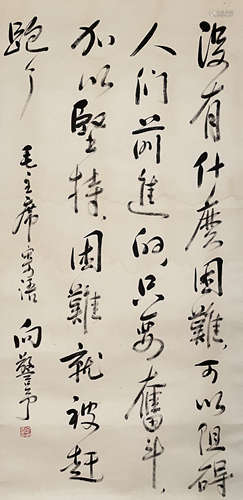 没有什麼困難,可以阻碍
人们前進的,只要奮斗,
加以堅持,困難就被赶
跑了
毛主席寄语 向警予